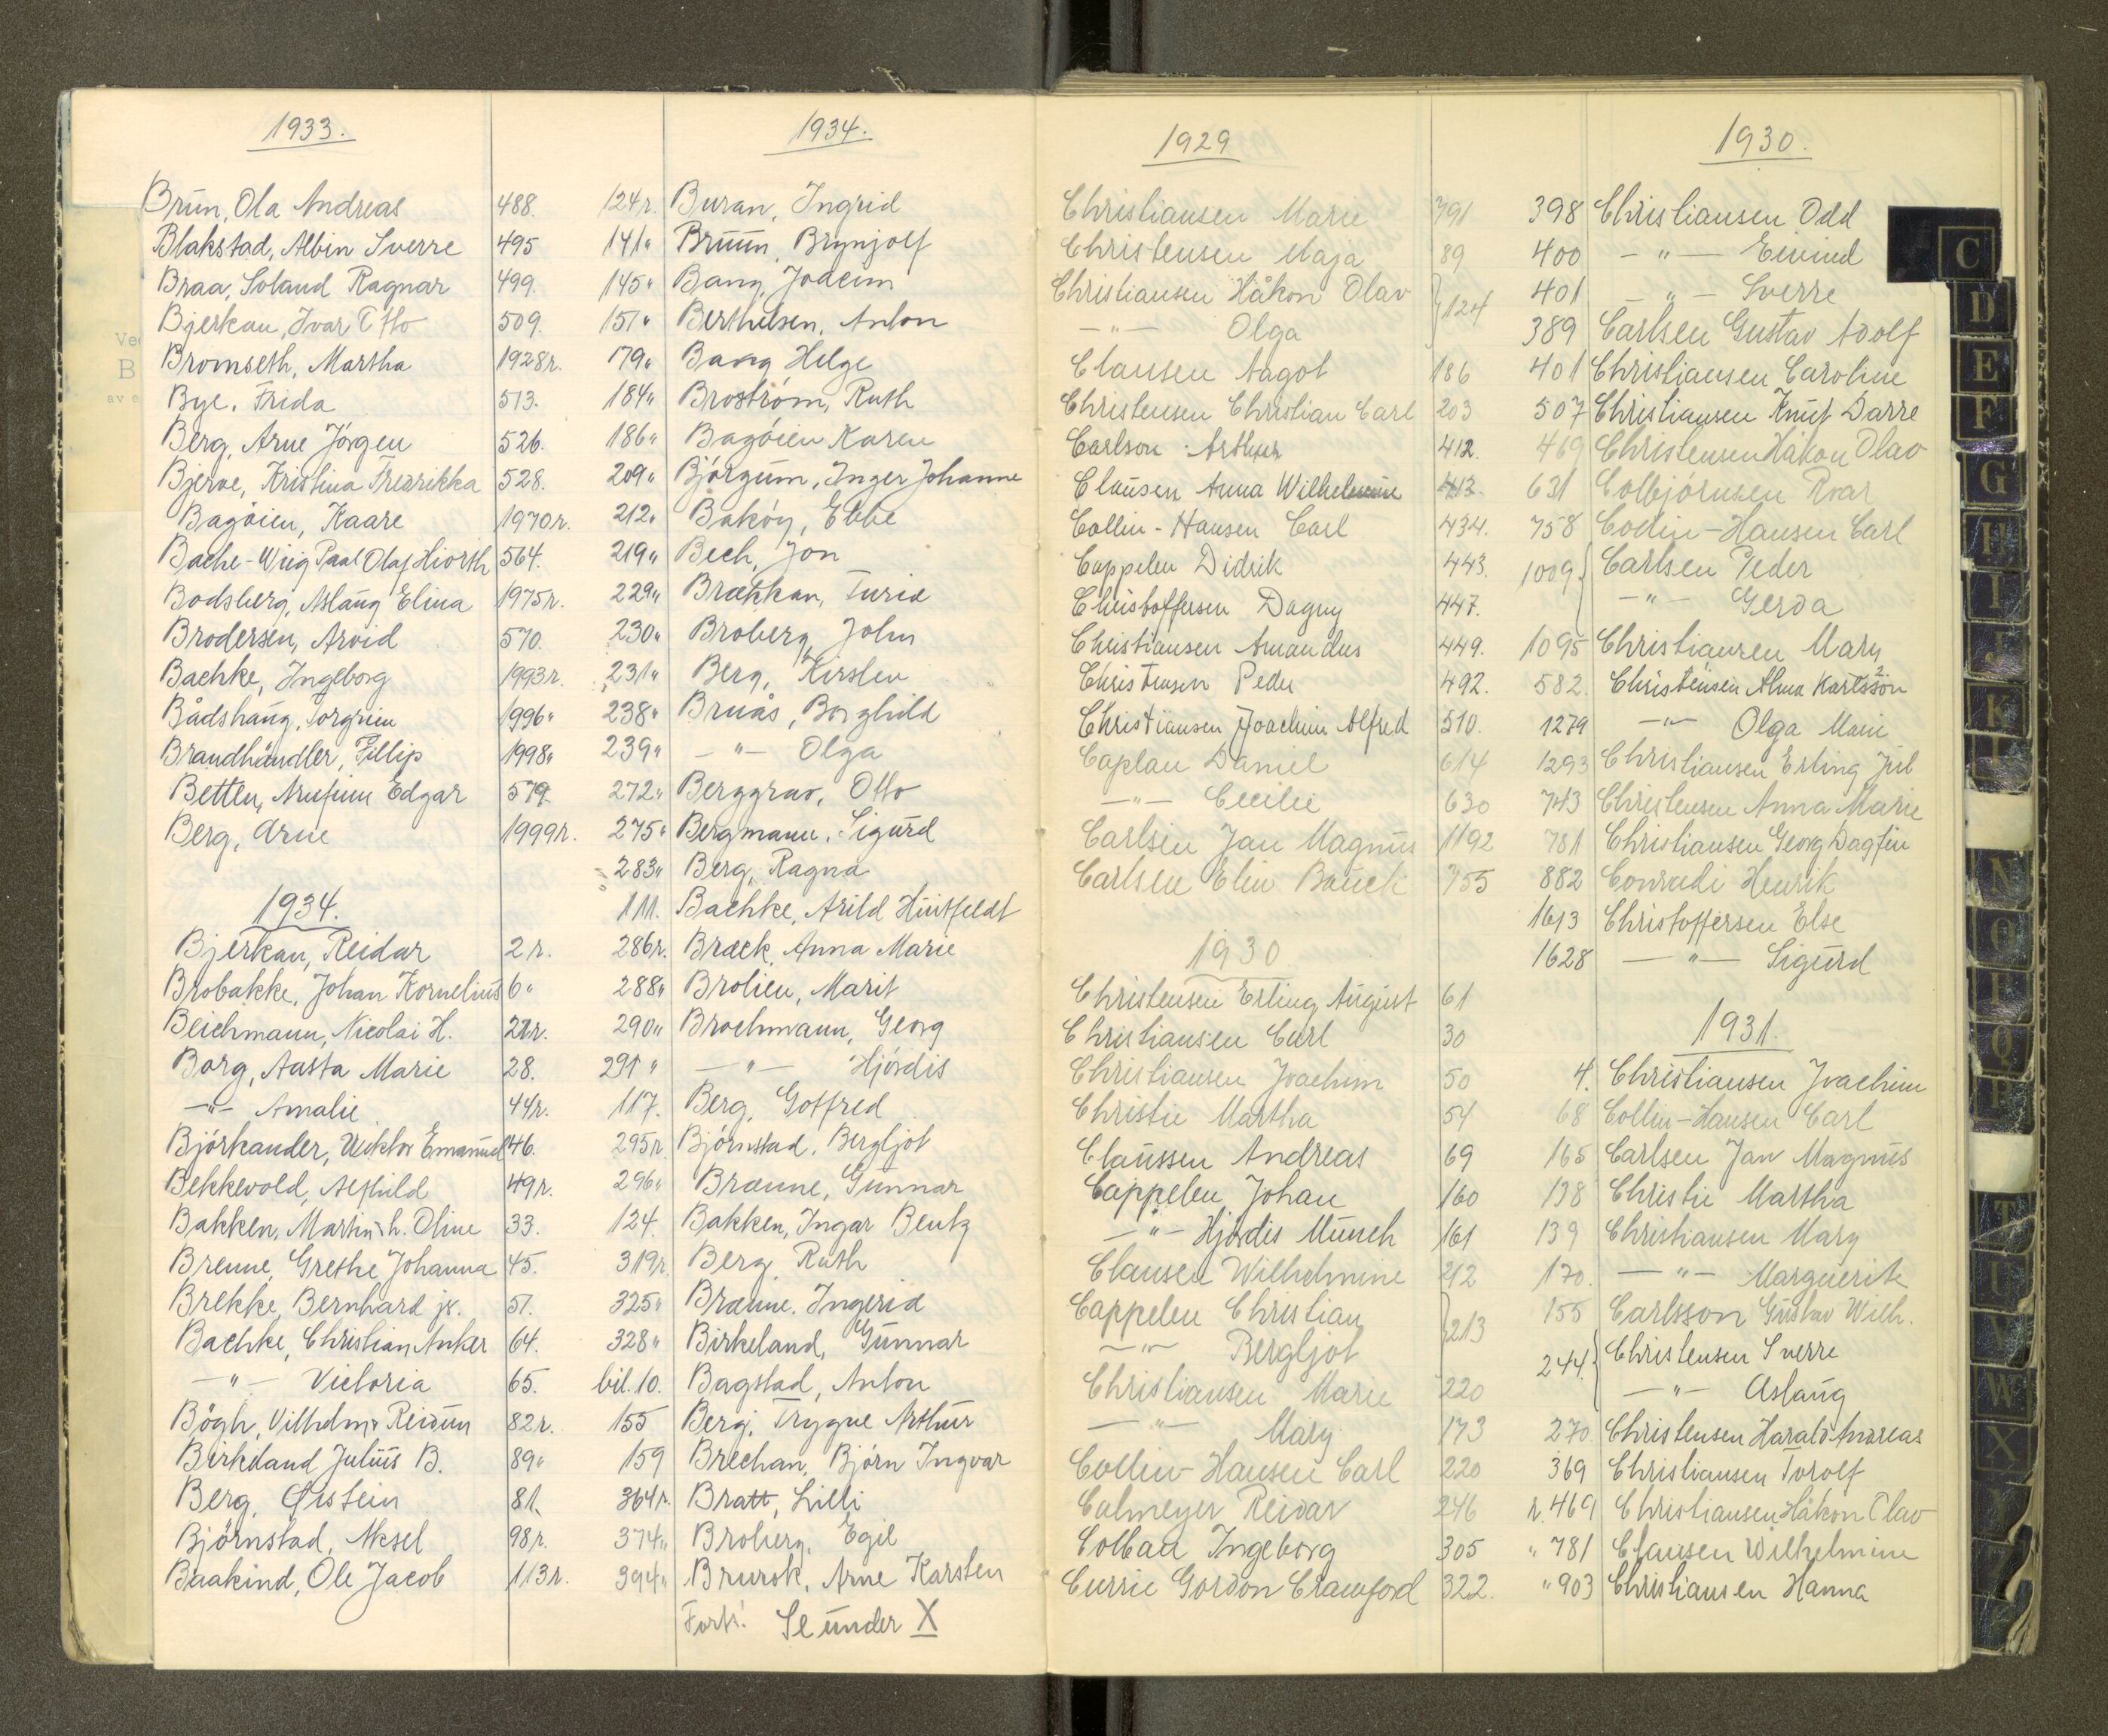 1933.
Brun, Ola Andreas 488.
Blakstad, Albin Sverre 495
Braa, Soland Ragnar 499.
Bjerkan, Ivar Otto 509.
Bromseth, Martha 1928r.
Bye, Frida 513.
Berg, Arne Jörgen 526.
Bjerve, Kristina Fredrikka 528.
Bagöien, Kaare 1970r.
Bache-Wiig Paal Olaf Hiorth 564.
Bodsberg, Aslaug Elina 1975r.
Brodersen, Arvid 570.
Bachke, Ingeborg 1993r.
Bådshaug, Torgrim 1996"
Brandhändler, Fillip 1998"
Betten, Arnfinn Edgar 579.
Berg, Arne 1999r.
1934.
Bjerkan, Reidar 2r.
Brobakke, Johan Kornelius 6"
Beichmann, Nicolai H. 21r.
Borg, Aasta Marie 28.
—"— Amalie 44r.
Björkander, Viktor Emanuel 46.
Bekkevold, Alfhild 49r.
Bakken, Martin h. Oline 33.
Brenne, Grethe Johanna 45.
Brekke, Bernhard jr. 51.
Bachke, Christian Anker 64.
—"— Victoria 65.
Bögh, Vilhelm Reidun 82r.
Birkeland Julius B. 89"
Berg, Øistein 81.
Björnstad, Aksel 98r.
Baakind, Ole Jacob 113r.
1934.
124r. Buran, Ingrid
141" Bruun, Brynjolf
145" Bang, Joacim
151" Berthelsen, Anton
179" Bang Helge
184" Broström, Ruth
186" Bagöien Karen
209" Bjórgum, Inger Johanne
212" Bakóy, Ebbe
219" Bech, Jon
229" Brækkan, Turid
230" Broberg, John
231" Berg, Kirsten
238" Bruås, Borghild
239" —"— Olga
272" Berggrav, Otto
275" Bergmann, Sigurd
283" Berg, Ragna
111. Bachke, Arild Huitfeldt
286r. Bræck, Anna Marie
288" Brolien, Marit
290" Brochmann, Georg
291" —"— Hjördis
117. Berg, Gotfred
295r. Björnstad, Bergljot
296" Brænne, Gunnar
124. Bakken, Ingar Bentz
319r. Berg, Ruth
325" Brænne, Ingerid
328" Birkeland, Gunnar
bil.10. Bagstad, Anton
155 Berg, Trygve Arthur
159 Brechan, Björn Ingvar
364r. Bratt, Lilli
374" Broberg, Egil
394" Brursk, Arne Karsten
Forts! Se under X
1929
Christiansen Marie 791
Christensen Maja 89
Christiansen Håkon Olav } 124
—"— Olga
Clausen Aagot 186
Christensen Christian Carl 203
Carlson Arthur 412.
Clausen Anna Wilhelmine 413.
Collin-Hansen Carl 434.
Cappelen Didrik 443.
Christoffersen Dagny 447.
Christiansen Amandus 449.
Christensen Peder 492.
Christiansen Joachim Alfred 510.
Caplan Daniel 614
—"— Cecilie 630
Carlsen Jan Magnus 1192
Carlsen Elin Bauck 755
1930
Christensen Erling August 61
Christiansen Carl 30
Christiansen Joachim 50
Christie Martha 54
Claussen Andreas 69
Cappelen Johan 160
—"— Hjördis Münch 161
Clausen Wilhelmine 212
Cappelen Christian } 213
—"— Bergljot
Christiansen Marie 220
—"— Mary 173
Collin-Hansen Carl 220
Colmeyer Reidar 246
Colban Ingeborg 305
Currie Gordon Crawford 322.
1930.
398 Christiansen Odd
400 —"— Eivind
401 —"— Sverre
389 Carlsen Gustav Adolf
401 Christiansen Caroline
507 Christiansen Knut Darre
469 Christensen Håkon Olav
631 Colbjörnsen Roar
758 Collin-Hansen Carl
1009 { Carlsen Peder
—"— Gerda
1095 Christiansen Mary
582. Christensen Alma Karlsson
1279 —"— Olga Marie
1293 Christiansen Erling Jul
743 Christensen Anna Marie
781 Christiansen Georg Dagfin
882 Conradi Henrik
1613 Christoffersen Else
1628 —"— Sigurd
1931.
4. Christiansen Joachim
68 Collin-Hansen Carl
165 Carlsen Jan Magnus
138 Christie Martha
139 Christiansen Mary
170. —"— Marguerite
155 Carlsson Gustav Wilh.
244. { Christensen Sverre
—"— Aslaug
270 Christensen Harald Andreas
369 Christiansen Torolf
r.469 Christiansen Håkon Olav
" 781 Clausen Wilhelmine
" 903 Christiansen Hanna
C
D
E
F
G
H
I
J
K
L
N
O
P
Q
R
T
U
V
W
X
Y